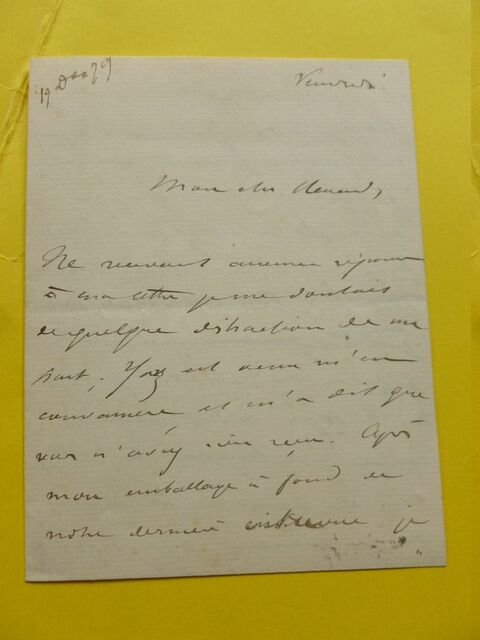 19 Dec 79
Vendredi
Mon cher Renard,
Ne recevant aucune réponse
à ma lettre je me doutais
de quelque distraction de ma
part. est venu m'en
convaincre et m'a dit que
vous n'aviez rien reçu. Après
mon emballage à fond de
notre dernière je